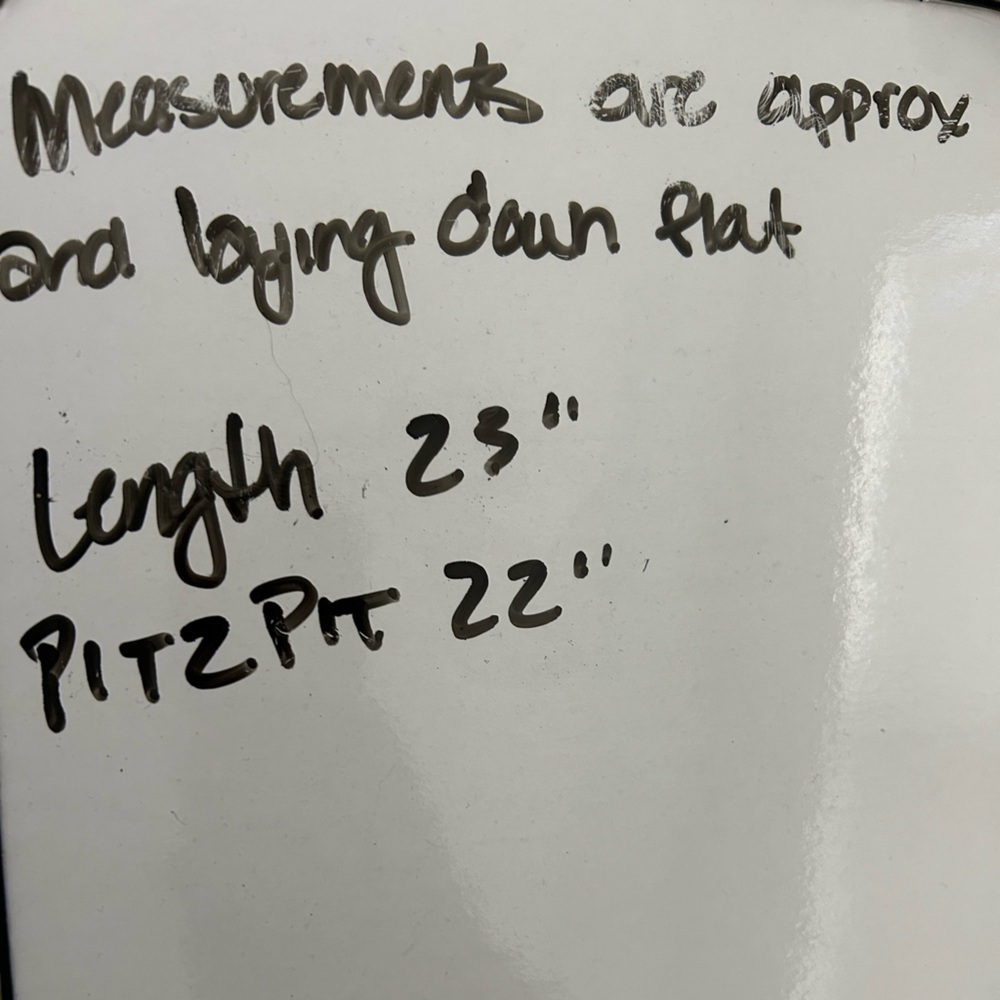 Measurements are approx
and laying down flat
Length 23"
PIT2PIT 22"